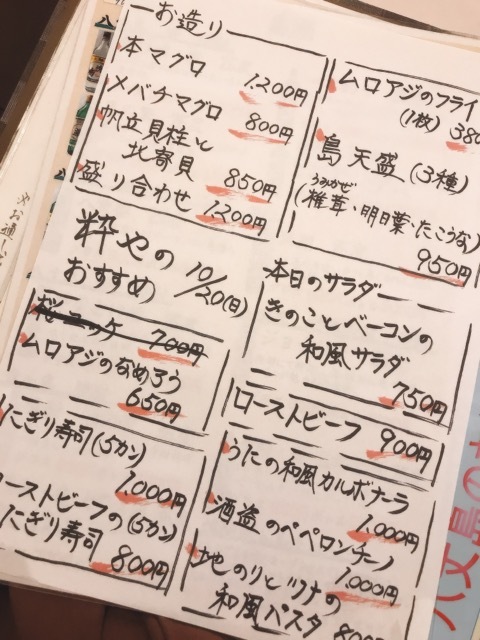 お造り
本マグロ
1,200円
メバチマグロ
800円
帆立貝柱と
北寄貝
850円
盛り合わせ
1,200円
ムロアジのフライ
(1枚) 380
島天盛(3種)
うみかぜ
(椎茸・明日葉・たこうな)
950円
粋やの
おすすめ
10/20(日)
700円
ムロアジのなめろう
650円
にぎり寿司(5カン)
1,000円
ローストビーフの(5カン)
にぎり寿司
800円
本日のサラダ
きのことベーコンの
和風サラダ
750円
ローストビーフ
900円
うにの和風カルボナーラ
1,000円
酒盗のペペロンチーノ
1,000円
地のりとツナの
和風パスタ